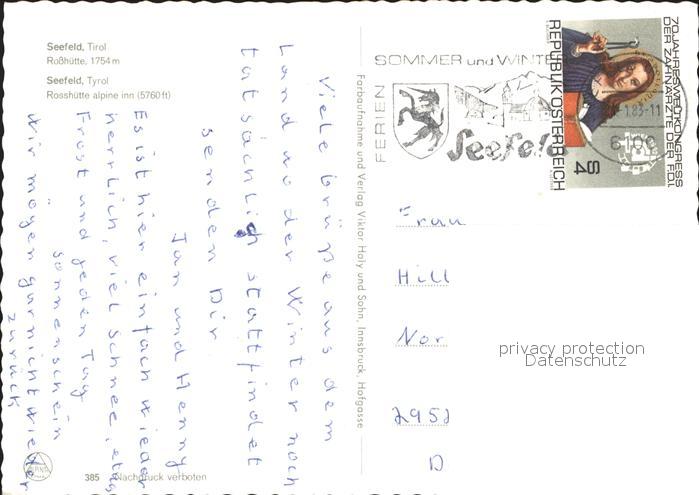 Seefeld, Tirol
Roßhütte, 1754 m
Seefeld, Tyrol
Rosshütte alpine inn (5760 ft)
Viele Grüße aus dem
Land wo der Winter noch
tatsächlich stattfindet
senden Dir
Jan und Henny
Es ist hier einfach wieder
herrlich, viel Schnee, etwas
Frost und jeden Tag
Sonnenschein
Wir mögen garnicht wieder
zurück
385 Nachdruck verboten
Farbaufnahme und Verlag Viktor Holy und Sohn, Innsbruck, Hofgasse
SOMMER und WINTER
FERIEN
Seefeld
1.83-11
70. JAHRESWELTKONGRESS
DER ZAHNÄRZTE DER F.D.I.
REPUBLIK ÖSTERREICH
S4
Frau
Hill
Nor
2952
D
privacy protection
Datenschutz